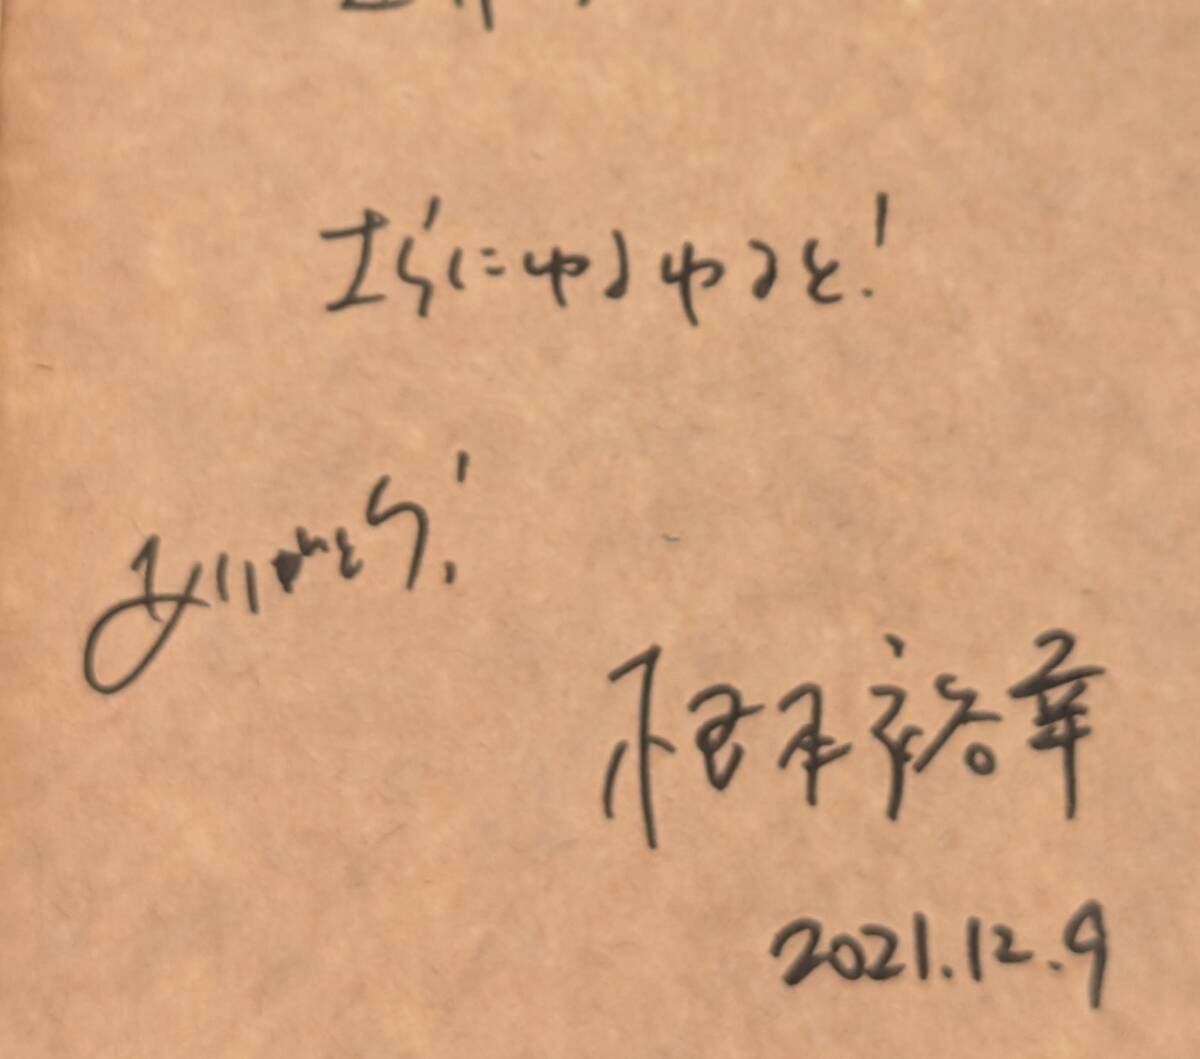 さらにゆるゆると!
ありがとう!
根本裕幸
2021.12.9